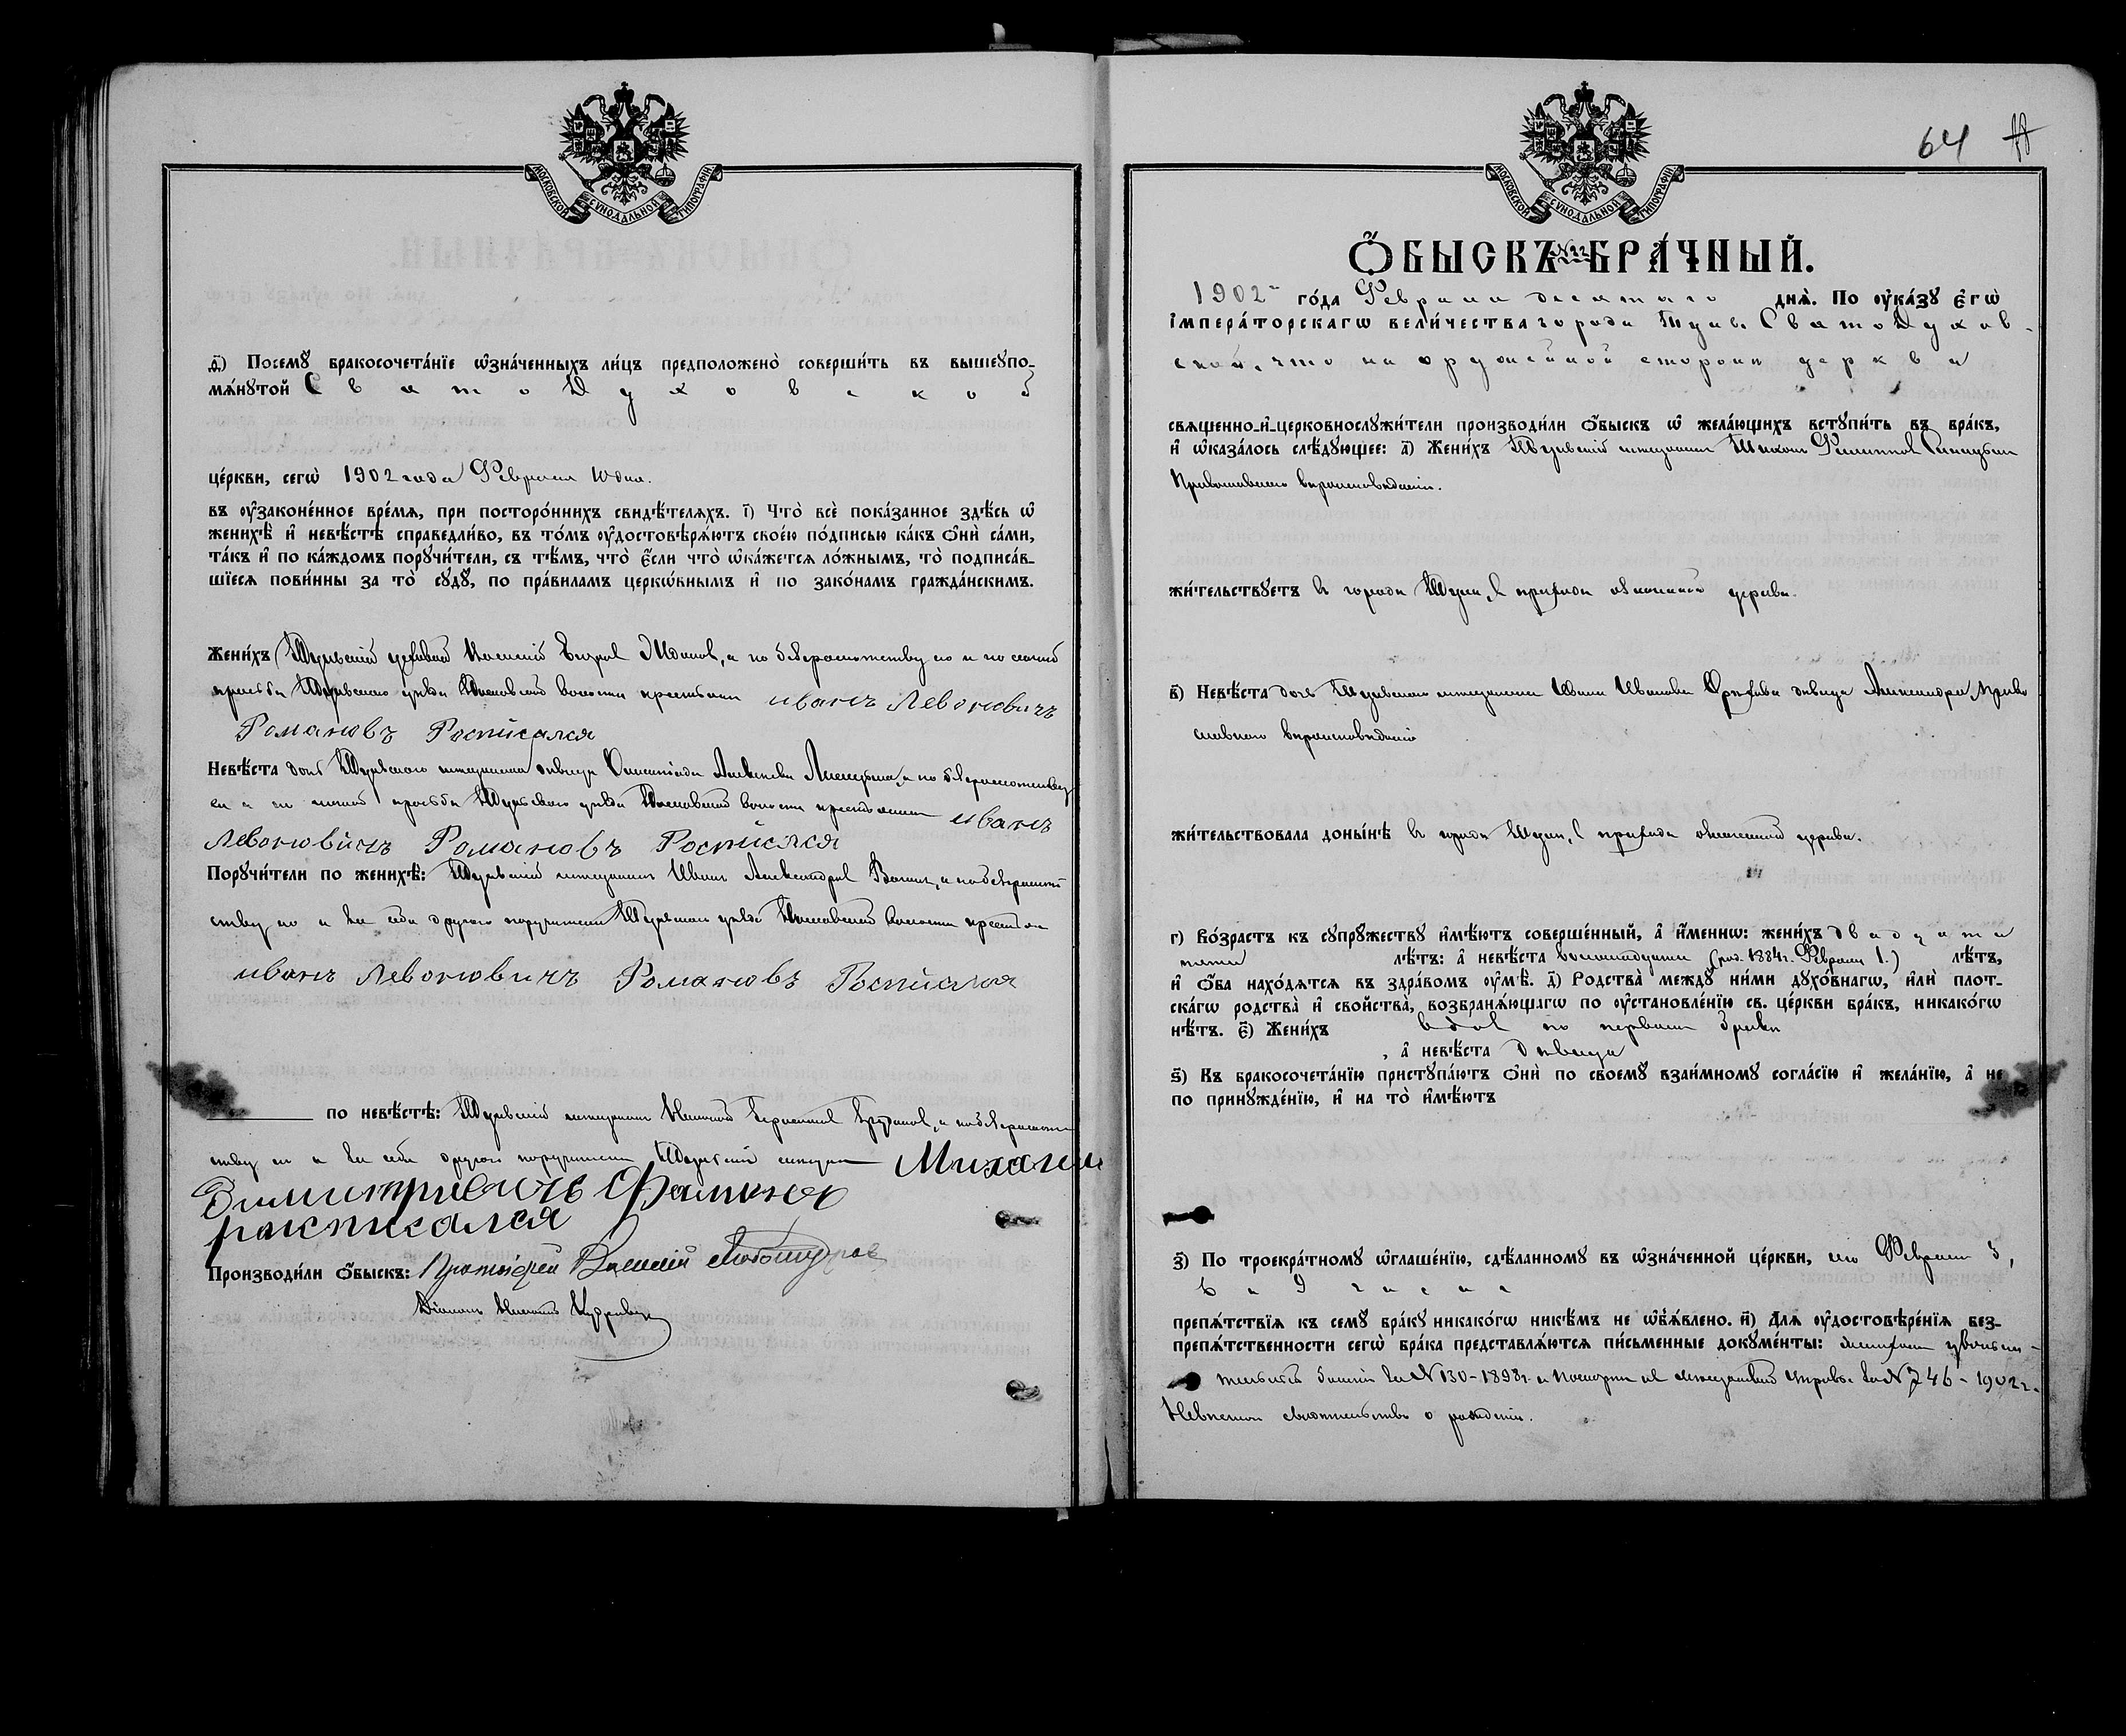 МОСКОВСКОЙ СУНОДАЛЬНОЙ ТИПОГРАФІИ
д҃) Посемꙋ̀ бракосочета́нїе ѡ҆зна́ченныхъ ли́цъ предположено̀ соверши́ть въ вышеꙋпо-
мѧ́нꙋтой СвятоДуховской
це́ркви, сегѡ̀ 1902 года Февраля 10 дня.
въ ᲂу҆законе́нное вре́мѧ, при посторо́ннихъ свидѣ́телѧхъ. і҃) Что̀ всѐ пока́занное здѣ́сь ѡ҆
женихѣ̀ и҆ невѣ́стѣ справедли́во, въ то́мъ ᲂу҆достовѣрѧ́ютъ свое́ю по́дписью ка́къ ѻ҆нѝ са́ми,
та́къ и҆ по ка́ждомъ порꙋчи́тели, съ тѣ́мъ, что̀ є҆́сли что̀ ѡ҆ка́жетсѧ ло́жнымъ, то̀ подписа́в-
шїесѧ пови́нны за то̀ сꙋдꙋ̀, по пра́виламъ церкѡ́внымъ и҆ по зако́намъ гражда́нскимъ.
Жени́хъ Тульскій цеховой Василій Егоровъ Ждановъ, а по безграмотству его и по личной
просьбѣ Тульскаго уѣзда волости крестьянинъ иванъ Левоновичъ
Романовъ Росписался
Невѣ́ста дочь Тульскаго мѣщанина дѣвица а по безграмотству
ея и по личной просьбѣ Тульскаго уѣзда волости крестьянинъ иванъ
Левоновичъ Романовъ Росписался
Порꙋчи́тели по женихѣ̀: Тульскій мѣщанинъ Иванъ Александровъ а по безграмот
ству его и за себя другой поручитель Тульскаго уѣзда волости крестьян
иванъ Левоновичъ Романовъ Росписался
по невѣ́стѣ: Тульскій мѣщанинъ а по безграмот
ству его и за себя другой поручитель Тульскій мѣщанинъ Михаилъ
Димитріевичъ
расписался
Производи́ли ѻ҆́быскъ: Протоіерей Василій Любомудровъ
Діаконъ
64
МОСКОВСКОЙ СУНОДАЛЬНОЙ ТИПОГРАФІИ
Ѻ҆́БЫСКЪ №22 БРА́ЧНЫЙ.
1902 го́да Февраля десятаго днѧ̀. По ᲂу҆ка́зꙋ є҆гѡ̀
і҆мпера́торскагѡ вели́чества города Тулы СвятоДухов-
ской, что на оружейной сторонѣ церкви
свѧщенно-и҆-церковнослꙋжи́тели производи́ли ѻ҆́быскъ ѡ҆ жела́ющихъ встꙋпи́ть въ бра́къ,
и҆ ѡ҆каза́лось слѣ́дꙋющее: а҃) Жени́хъ Тульскій мѣщанинъ Тихонъ Филипповъ Синицынъ
Православнаго вѣроисповѣданія.
жи́тельствꙋетъ въ городѣ Тулѣ, въ приходѣ означенной церкви.
в҃) Невѣ́ста дочь Тульскаго мѣщанина Ивана Иванова дѣвица Александра, Право
славнаго вѣроисповѣданія
жи́тельствовала доны́нѣ въ городѣ Тулѣ, въ приходѣ означенной церкви.
г҃) Во́зрастъ къ сꙋпрꙋ́жествꙋ и҆мѣ́ютъ соверше́нный, а҆ и҆́меннѡ: жени́хъ двадцати
пяти лѣ́тъ: а҆ невѣ́ста восемнадцати (род. 1884 г. Февраля 1.) лѣ́тъ,
и҆ ѻ҆́ба нахо́дѧтсѧ въ здра́вомъ ᲂу҆мѣ̀. д҃) Родства̀ междꙋ̀ ни́ми дꙋхо́внагѡ, и҆лѝ плот-
ска́гѡ родства̀ и҆ сво́йства̀, возбранѧ́ющагѡ по ᲂу҆становле́нїю св. це́ркви бра́къ, никако́гѡ
нѣ́тъ. є҃) Жени́хъ вдовъ по первомъ бракѣ
, а҆ невѣ́ста дѣвица
ѕ҃) Къ бракосочета́нїю пристꙋпа́ютъ ѻ҆нѝ по своемꙋ̀ взаи́мномꙋ согла́сїю и҆ жела́нїю, а҆ не
по принꙋжде́нїю, и҆ на то̀ и҆мѣ́ютъ
з҃) По троекра́тномꙋ ѡ҆глаше́нїю, сдѣ́ланномꙋ въ ѡ҆зна́ченной це́ркви, Февраля 3,
6 и 9 числа
препѧ́тствїѧ къ семꙋ̀ бра́кꙋ никако́гѡ никѣ́мъ не ѡ҆бъѧ́влено. и҃) Длѧ ᲂу҆достовѣре́нїѧ без-
препѧ́тственности сегѡ̀ бра́ка представлѧ́ютсѧ пи́сьменные докꙋме́нты: женихомъ увольни-
тельный билетъ за № 130-1898 г. и паспортъ изъ мѣщанской управы за № 746-1902 г.
Невѣстою свидѣтельство о рожденіи.